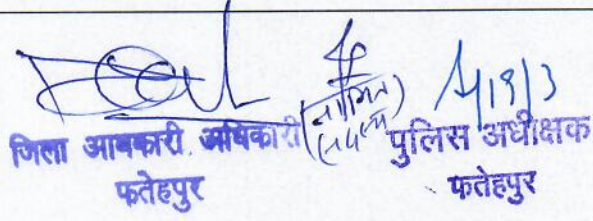 (नामित
सदस्य)
जिला आबकारी अधिकारी
फतेहपुर
पुलिस अधीक्षक
फतेहपुर